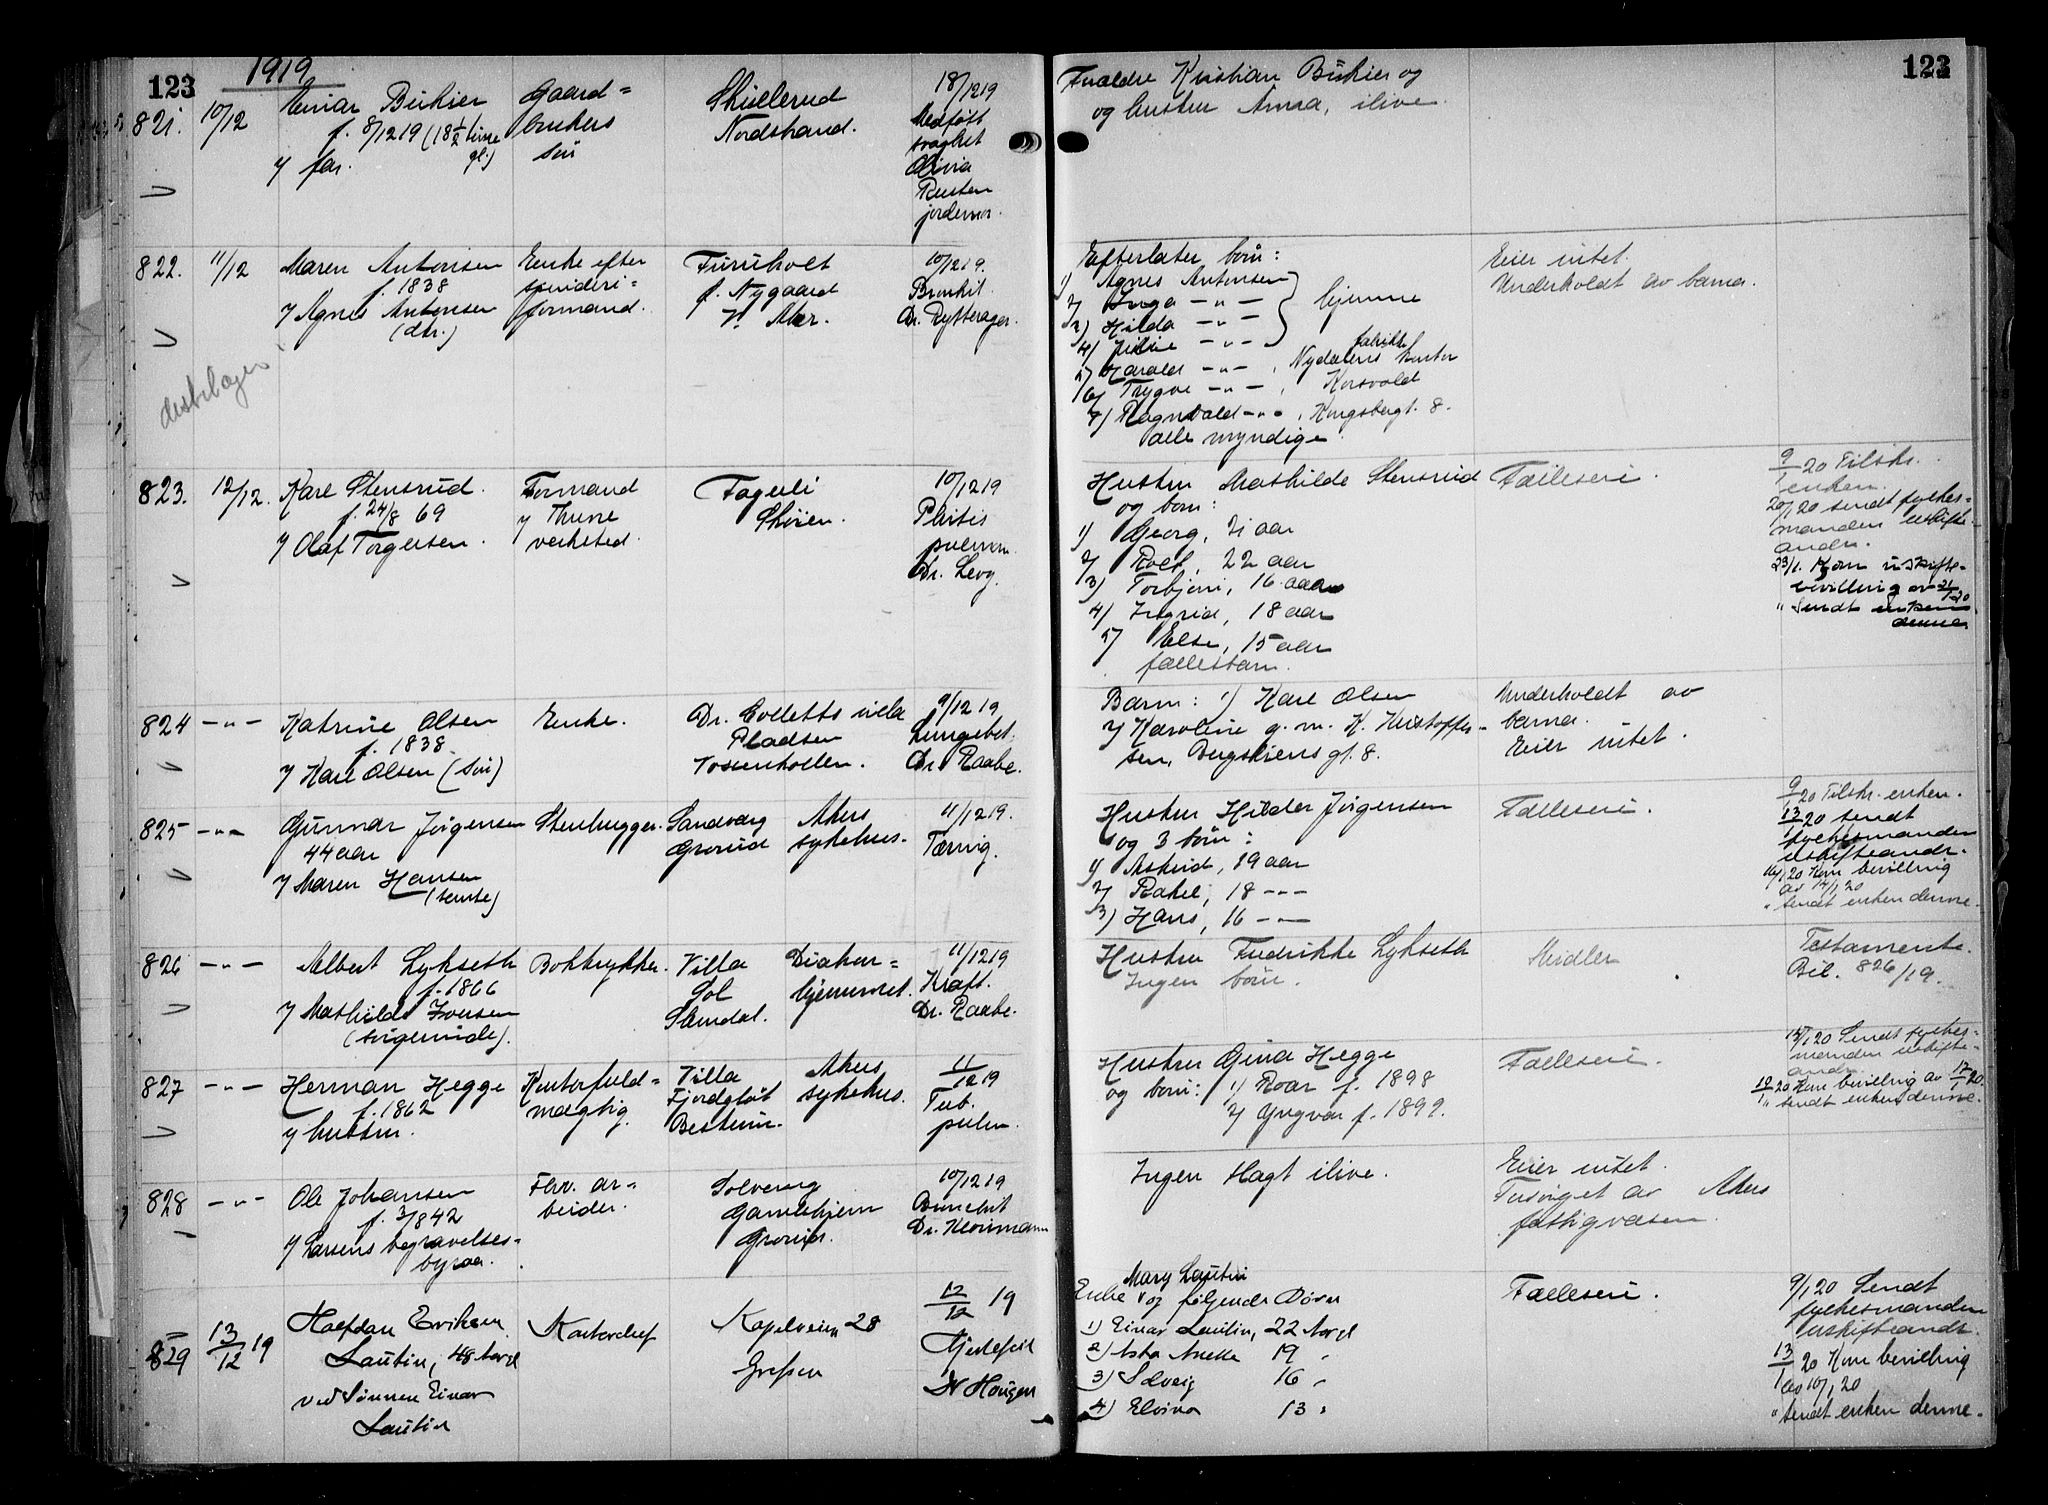 123
1919
123
821.
10/12
Einar Bükier
f. 8/12 19 (18 1/2 time
gl.)
v/ far.
Gaard=
brukers
søn
Skullerud
Nordstrand.
18/12 19
Medfødt
svaghet
Olivia
Rusten
jordmor.
Forældre Kristian Bükier og
og hustru Anna, ilive.
822.
11/12
Maren Antonsen
f. 1838
v/ Agnes Antonsen
(dtr.)
Enke efter
spinderi=
formand.
Furuholt
p. Nygaard
V. Aker.
10/12 19.
Bronkit.
Dr. Rytterager.
Efterlater børn:
1) Agnes Antonsen
2) Inga -"-
3) Hilda -"-
hjemme
4) -"-
5) Harald -"- , Nydalens fabrikk kontor
6) Trygve -"- , Korsvold
7) Ragnvald -"- , Kongsbergt. 8.
alle myndige.
Eier intet.
Underholdt av barna.
823.
12/12.
Karl Stensrud.
f. 24/8 69
v/ Olaf Torgersen.
Formand
v/ Thune
verksted.
Faguli
Skøien.
10/12 19
Phtisis
pulmon.
Dr. Levy.
Hustru Mathilde Stensrud
og børn:
1) Georg, 21 aar
2) Rolf, 22 aar
3) Torbjørn, 16 aar
4) Ingrid, 18 aar
5) Else, 15 aar
fællesbarn.
Fælleseie.
9/1 20 Tilskr.
enken.
20/1 20 sendt fylkes=
manden uskifte=
andr.
23/1. Kom uskifte=
bevilling av 21/1 20
" Sendt enken
denne
824
-"-
Katrine Olsen
f. 1838.
v/ Karl Olsen (søn)
Enke.
Dr. Colletts villa
Pladsen
Voksenkollen.
9/12 19
Lungebet.
Dr. Raabe.
Barn: 1) Karl Olsen
2) Karoline g. m. K. Kristoffer=
sen, Bergsliens gt. 8.
Underholdt av
barna.
Eier intet.
825
-"-
Gunnar Jørgensen
44 aar
v/ Maren Hansen
(tante)
Stenhugger.
Sandvang
Grorud
Akers
sykehus.
11/12 19.
Tæring.
Hustru Hilda Jørgensen
og 3 børn:
1) Astrid, 19 aar
2) Rakel, 18 -"-
3) Hans, 16 -"-
Fælleseie.
9/1 20 Tilskr. enken.
13/1 20 sendt
fylkesmanden
uskifteandr.
16/1 20 Kom bevilling
av 14/1 20
" sendt enken denne.
826
-"-
Albert Lykseth
f. 1866
v/ Mathilde Iversen
(svigerinde).
Boktrykker.
Villa
Sol
Slemdal.
Diakon=
hjemmet.
11/12 19
Kræft.
Dr. Raabe.
Hustru Fredrikke Lykseth
Ingen børn.
Midler
Testamente.
Bil. 826/19.
827
-"-
Herman Hegge
f. 1862
v/ hustru.
Kontorfuld=
mægtig.
Villa
Fjordgløt
Bestum.
Akers
sykehus.
11/12 19
Tub.
pulm.
Hustru Gina Hegge
og børn: 1) Roar f. 1898
2) Yngvar f. 1899.
Fælleseie.
14/1 20 Sendt fylkes=
manden uskifte=
andr.
19/1 20 Kom bevilling av 17/1 20.
" sendt enken denne.
828
-"-
Ole Johansen
f. 3/8 42
v/ Larsens begravelses=
byraa.
Fhv. ar=
beider.
Solveng
Gamlehjem
Grorud.
10/12 19
Bronchit
Dr. Klouman
Ingen slægt ilive.
Eier intet.
Forsørget av Akers
fattigvæsen.
829
13/12 19
Halfdan Eriksen
Lautin, 48 Aar gl
ved Sønnen Einar
Lautin
Kontorchef
Kapelveien 28
Grefsen
12/12 19
Hjertefeil
Dr Hougen
Mary Lautin
Enke og følgende Børn
1) Einar Lautin, 22 Aar gl
2) Asta Anette 19 "
3) Solveig 16 "
4) Elvina 13 "
Fælleseie.
9/1 20 Sendt
fylkesmanden
uskifteandr.
13/1 20 Kom bevilling
av 10/1 20
" sendt enken denne.